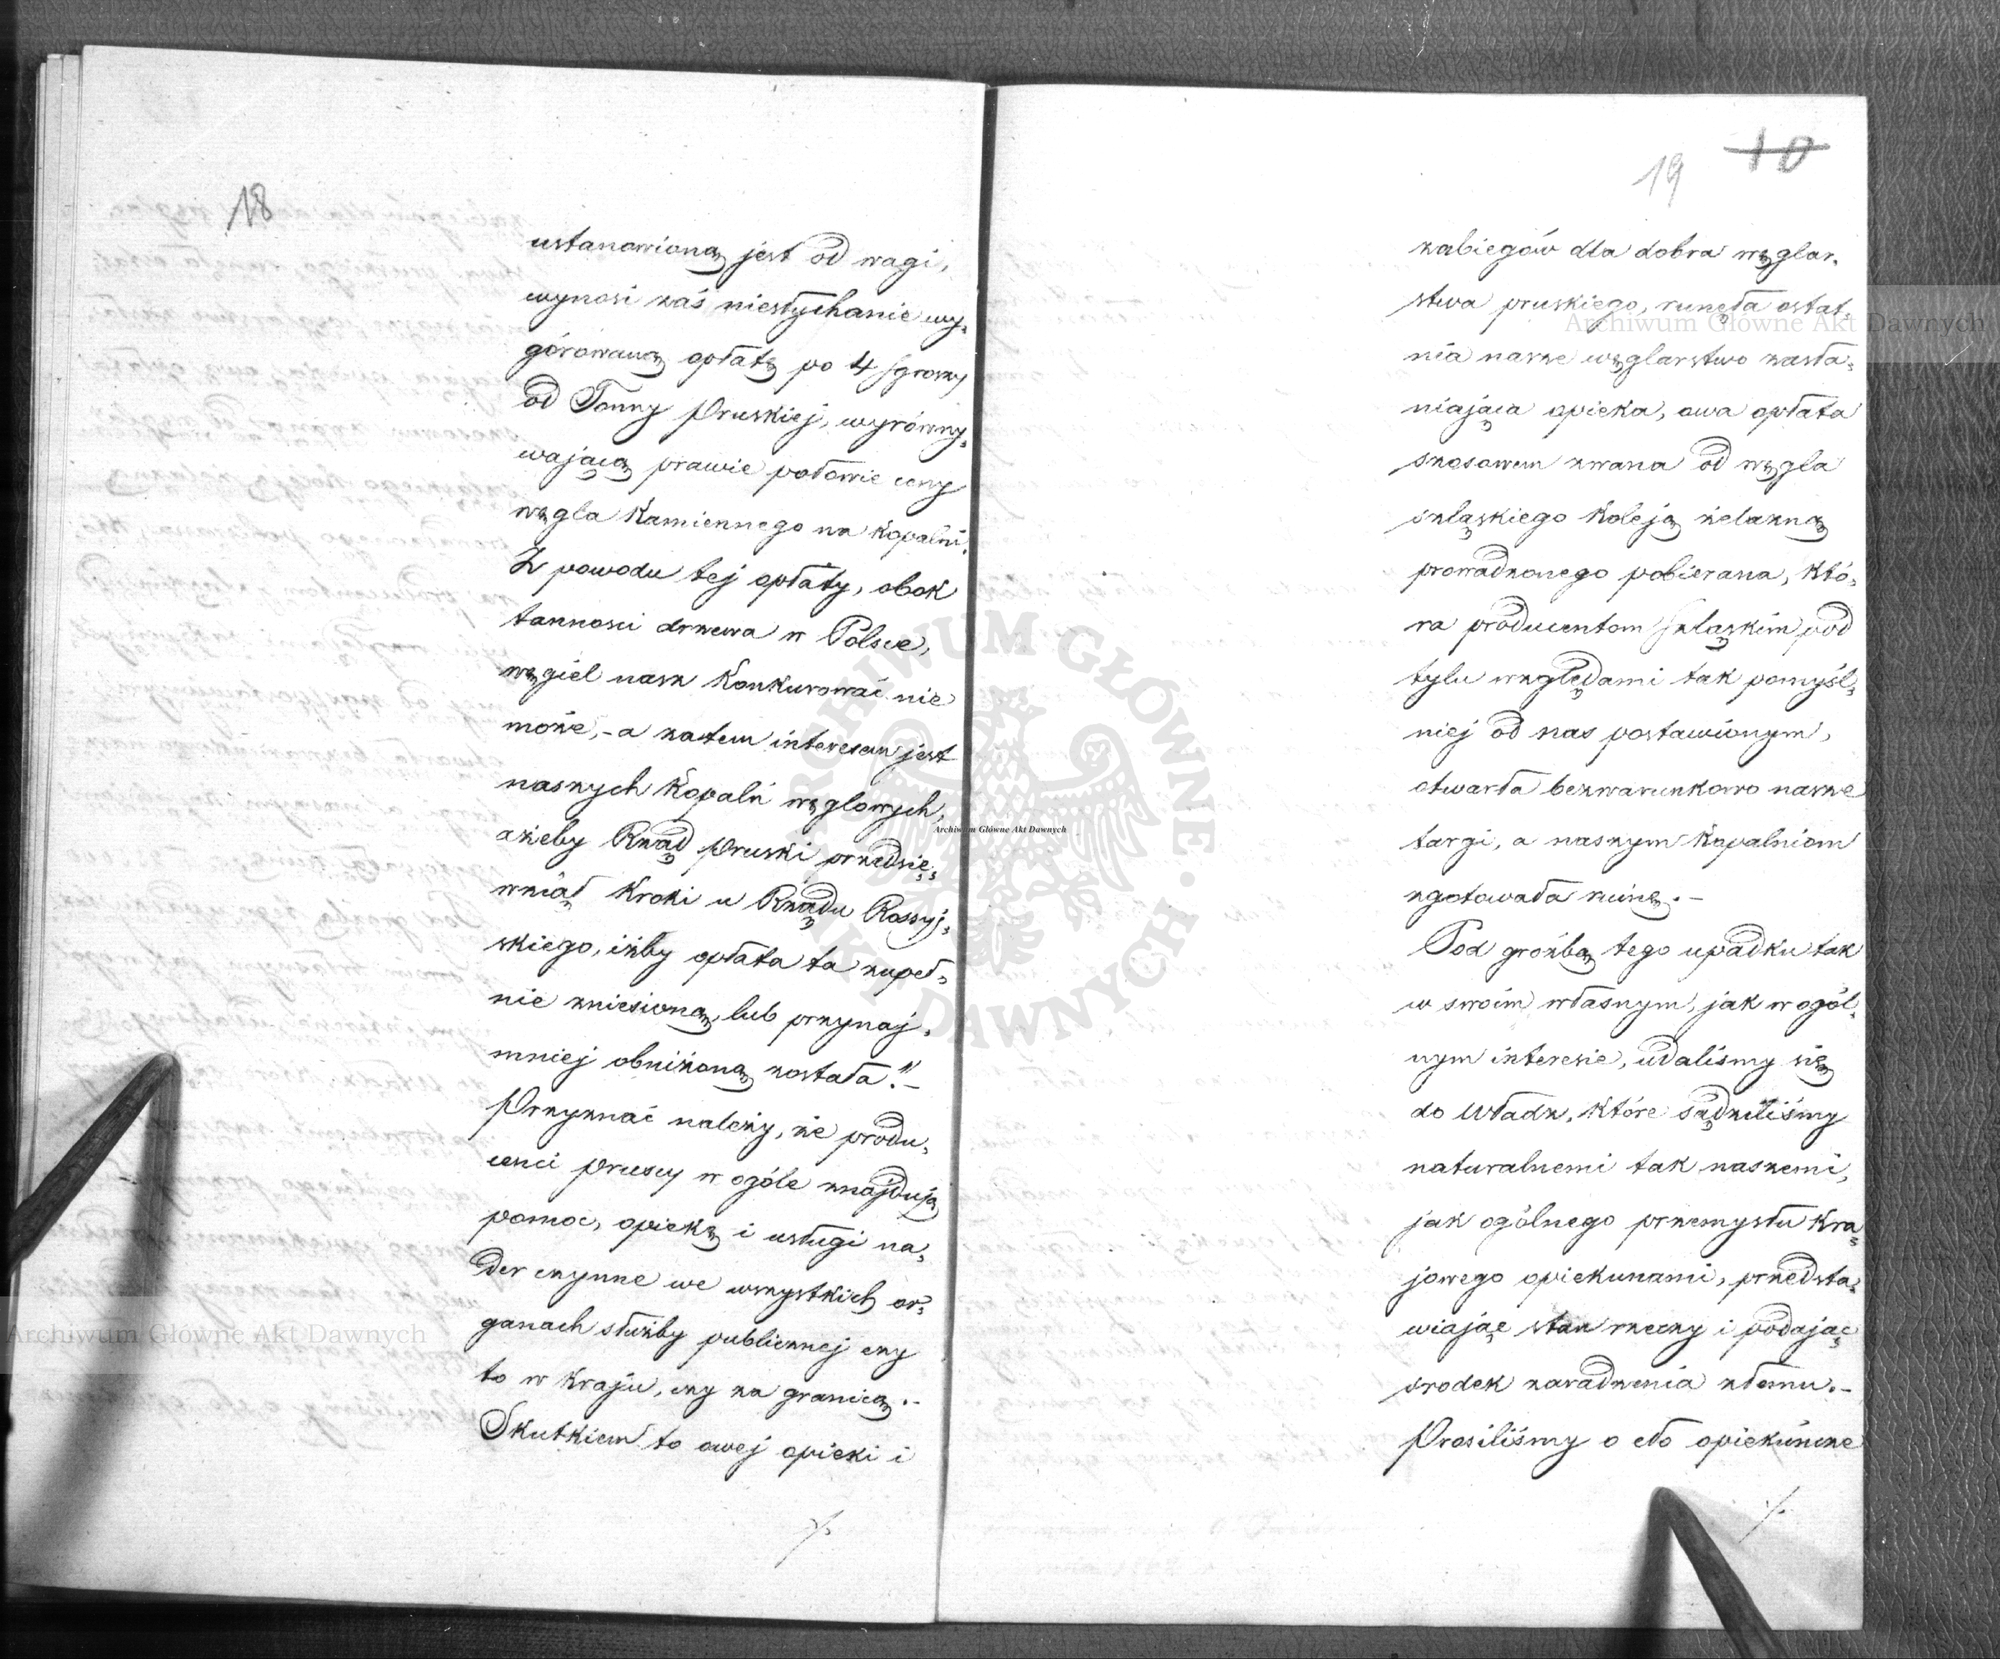 18
ustanowioną jest od wagi,
wynosi zaś niesłychanie wy-
górowaną opłatę po 4 sgroszy
od Tonny Pruskiej, wyrówny-
wającą prawie połowie ceny
węgla Kamiennego na Kopalni.
Z powodu tej opłaty, obok
tanności drzewa w Polsce,
węgiel nasz Konkurować nie
może,- a zatem interesem jest
naszych Kopalń węglowych,
ażeby Rząd Pruski przedsię-
wziął Kroki u Rządu Rossyj-
skiego, iżby opłata ta zupeł-
nie zniesioną, lub przynaj-
mniej obniżoną została."-
Przyznać należy, że produ-
cenci pruscy w ogóle znajdują
pomoc, opiekę i usługi na-
der czynne we wszystkich or-
ganach służby publicznej czy
to w Kraju, czy za granicą.-
Skutkiem to owej opieki i
./.
19 10
zabiegów dla dobra węglar-
stwa pruskiego, runęła ostat-
nia nasze węglarstwo zasła-
niająca opieka, owa opłata
szosowem zwana od węgla
szląskiego Koleją żelazną
prowadzonego pobierana, Któ-
ra producentom szląskim pod
tylu względami tak pomyśl-
niej od nas postawionym,
otwarła bezwarunkowo nasze
targi, a naszym Kopalniom
zgotowała ruinę.-
Pod groźbą tego upadku tak
w swoim własnym, jak w ogól-
nym interesie, udaliśmy się
do Władz, Które sądziliśmy
naturalnemi tak naszemi,
jak ogólnego przemysłu Kra-
jowego opiekunami, przedsta-
wiając stan rzeczy i podając
środek zaradzenia złemu.-
Prosiliśmy o cło opiekuńcze
./.
Archiwum Główne Akt Dawnych
Archiwum Główne Akt Dawnych
Archiwum Główne Akt Dawnych
ARCHIWUM GŁÓWNE AKT DAWNYCH